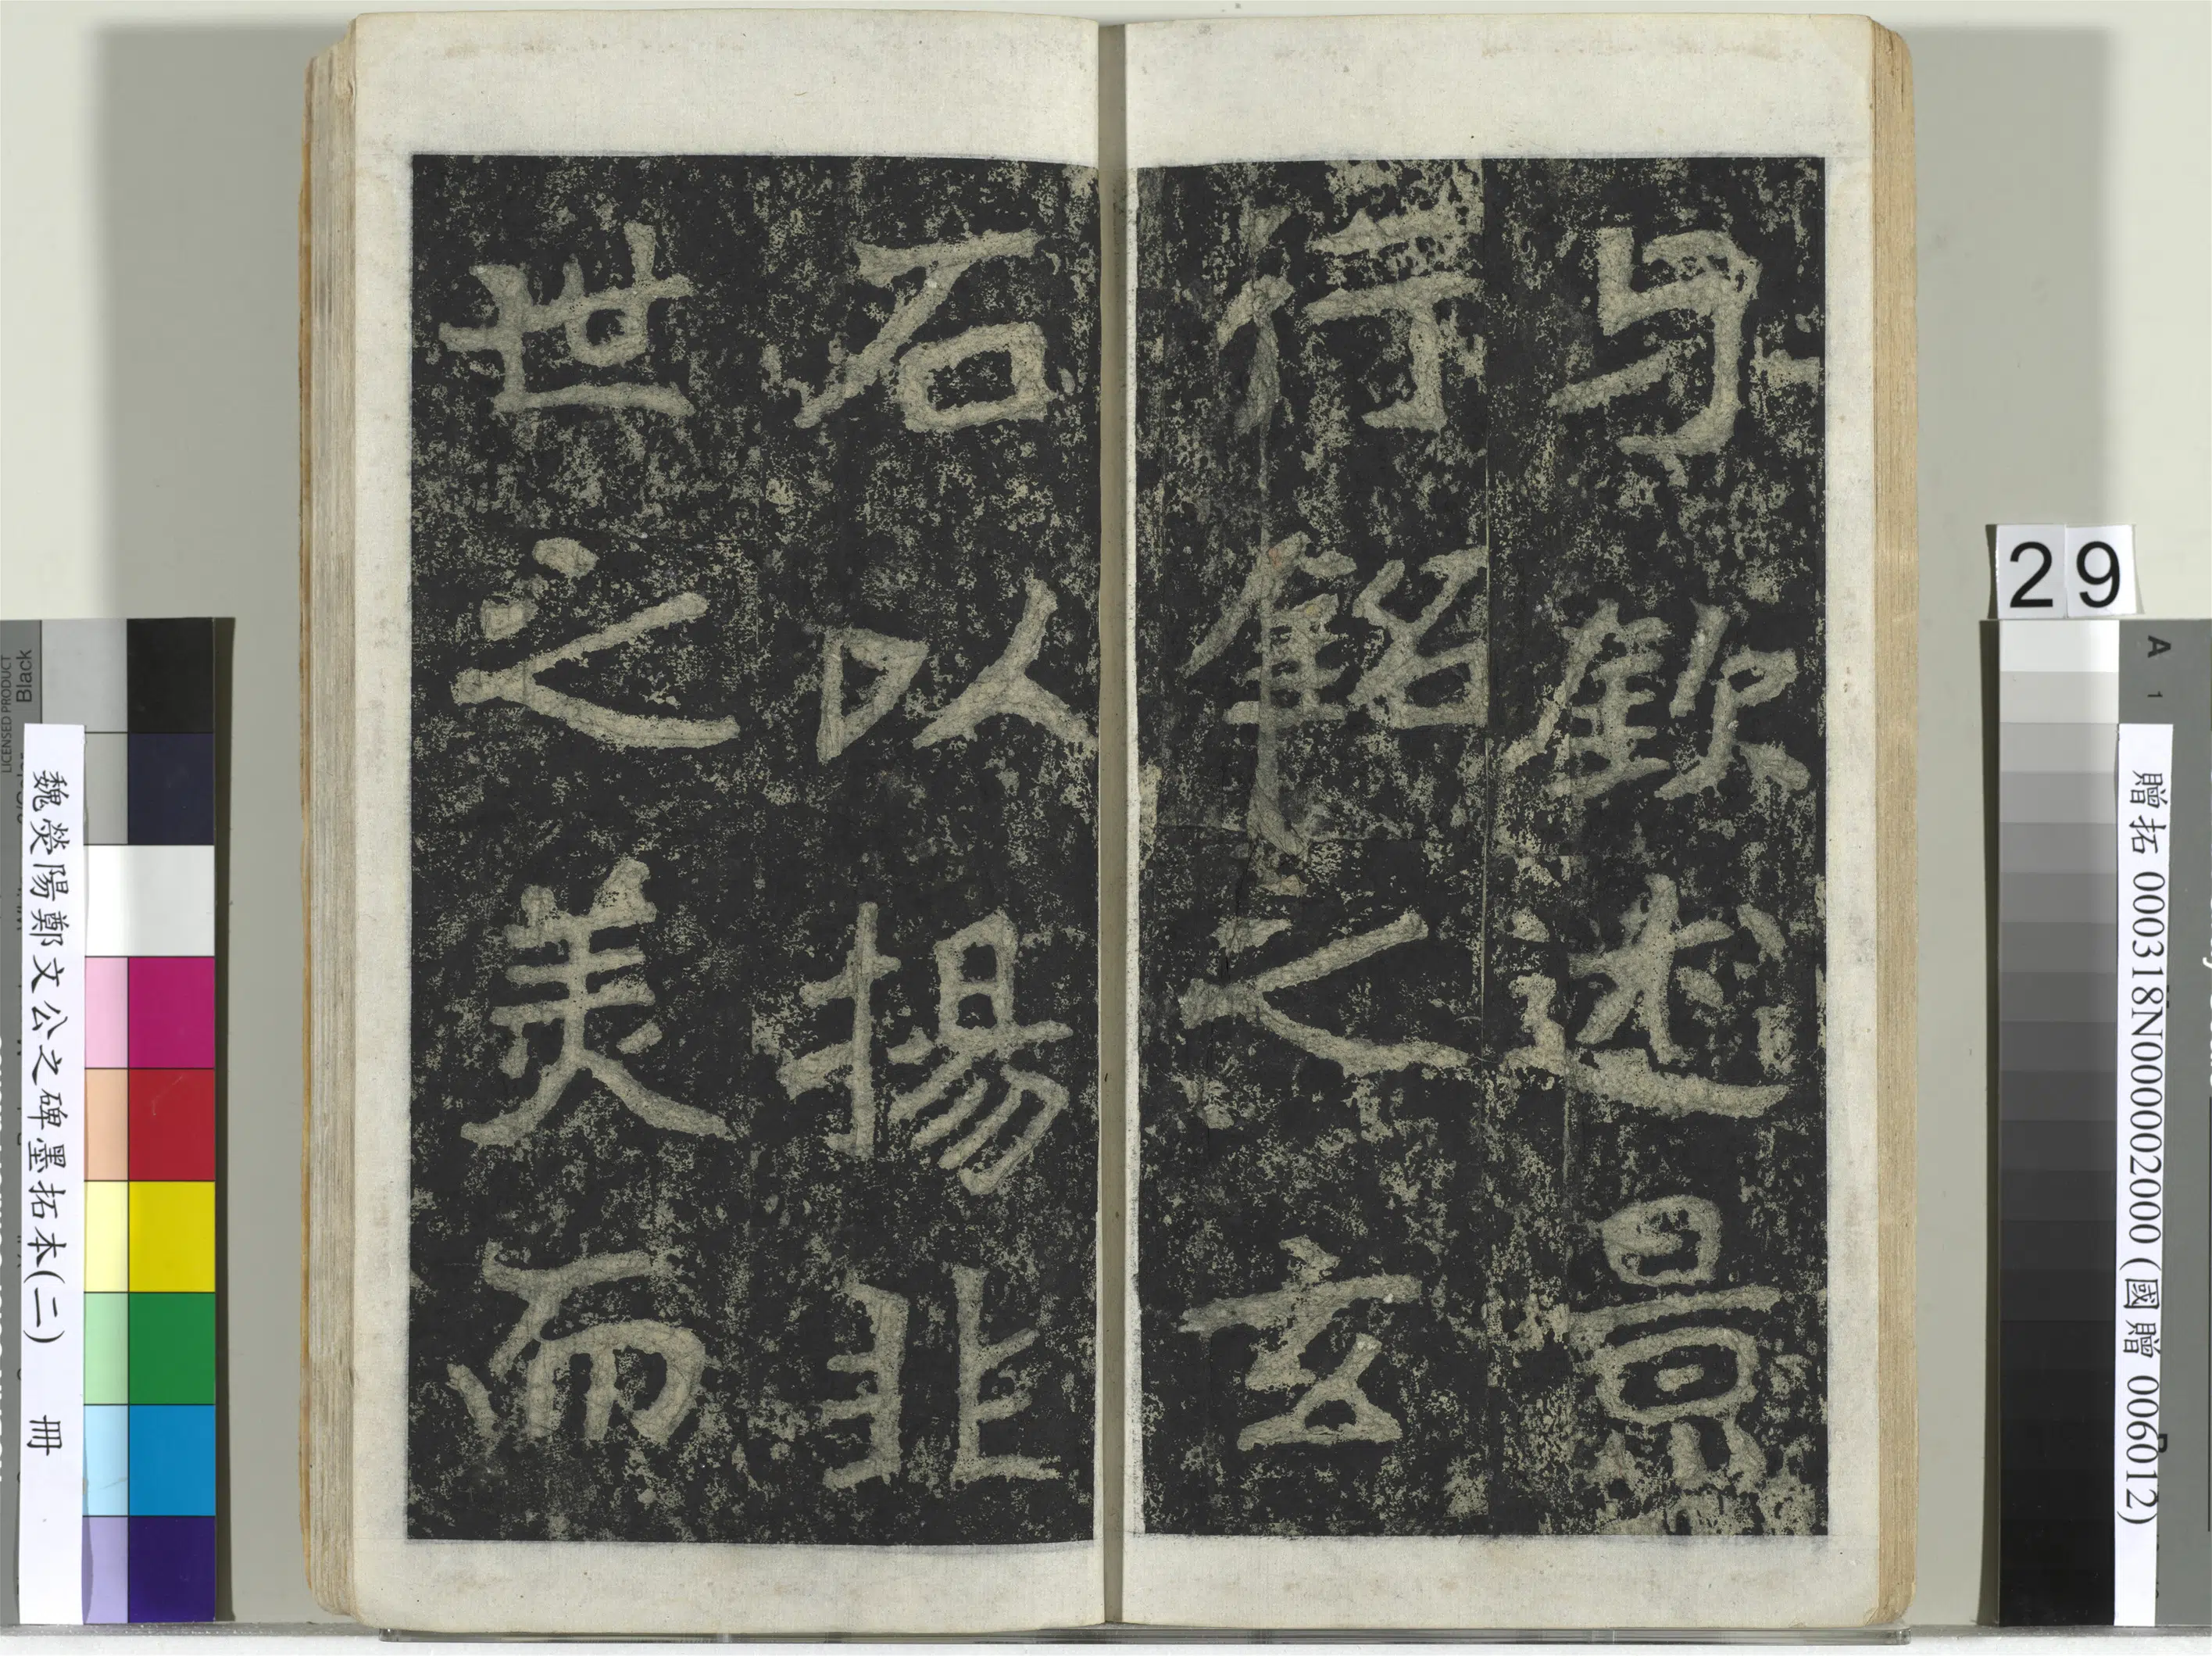 与欽述景
行銘之玄
石以揚非
世之美而
29
A 1
贈拓 000318N000002000 (國贈 006012)
魏熒陽鄭文公之碑墨拓本(二) 冊
Black
LICENSED PRODUCT